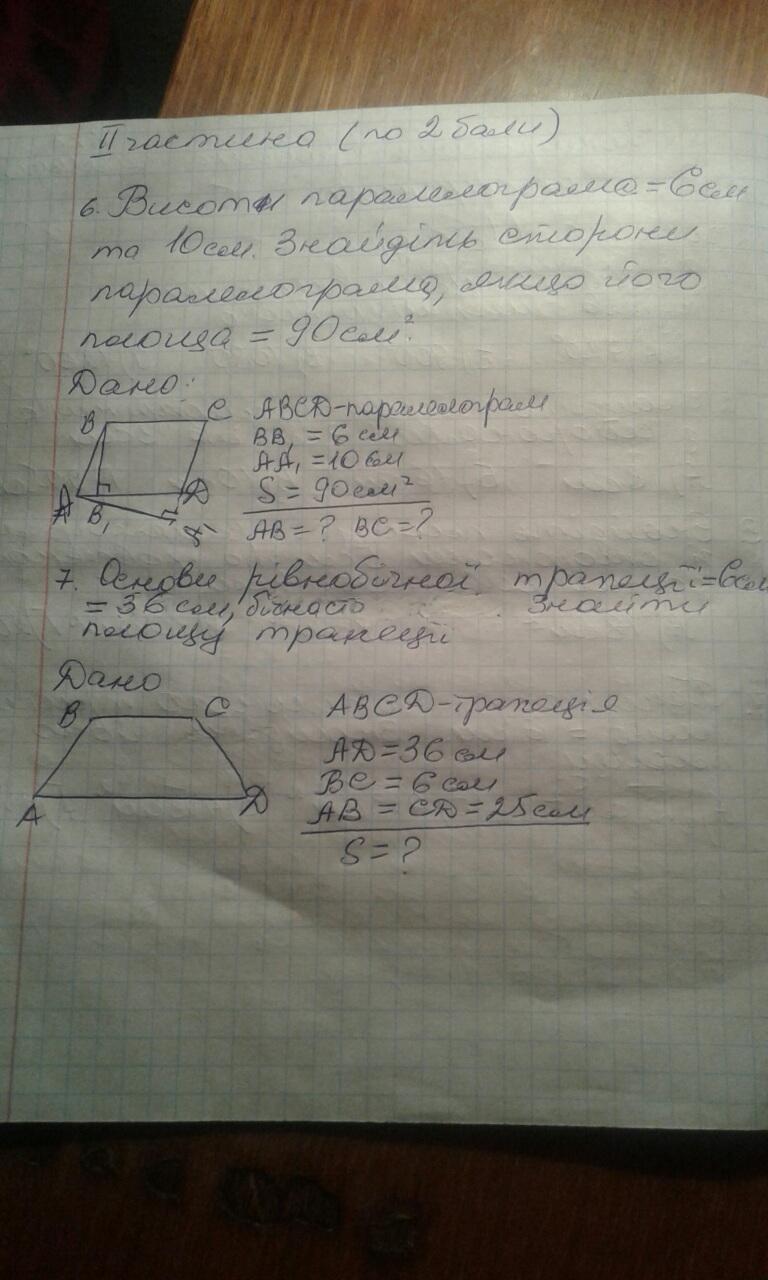 II частина (по 2 бали)
6. Висоти паралелограма = 6 см
та 10 см. Знайдіть сторони
паралелограма, якщо його
площа = 90 см².
Дано:
B C
A B₁ D
ABCD-паралелограм
BB₁ = 6 см
AA₁ = 10 см
S = 90 см²
AB = ? BC = ?
7. Основи рівнобічної трапеції = 6 см
= 36 см, Знайти
площу трапеції
Дано
B C
A D
ABCD-трапеція
AD = 36 см
BC = 6 см
AB = CD = 25 см
S = ?